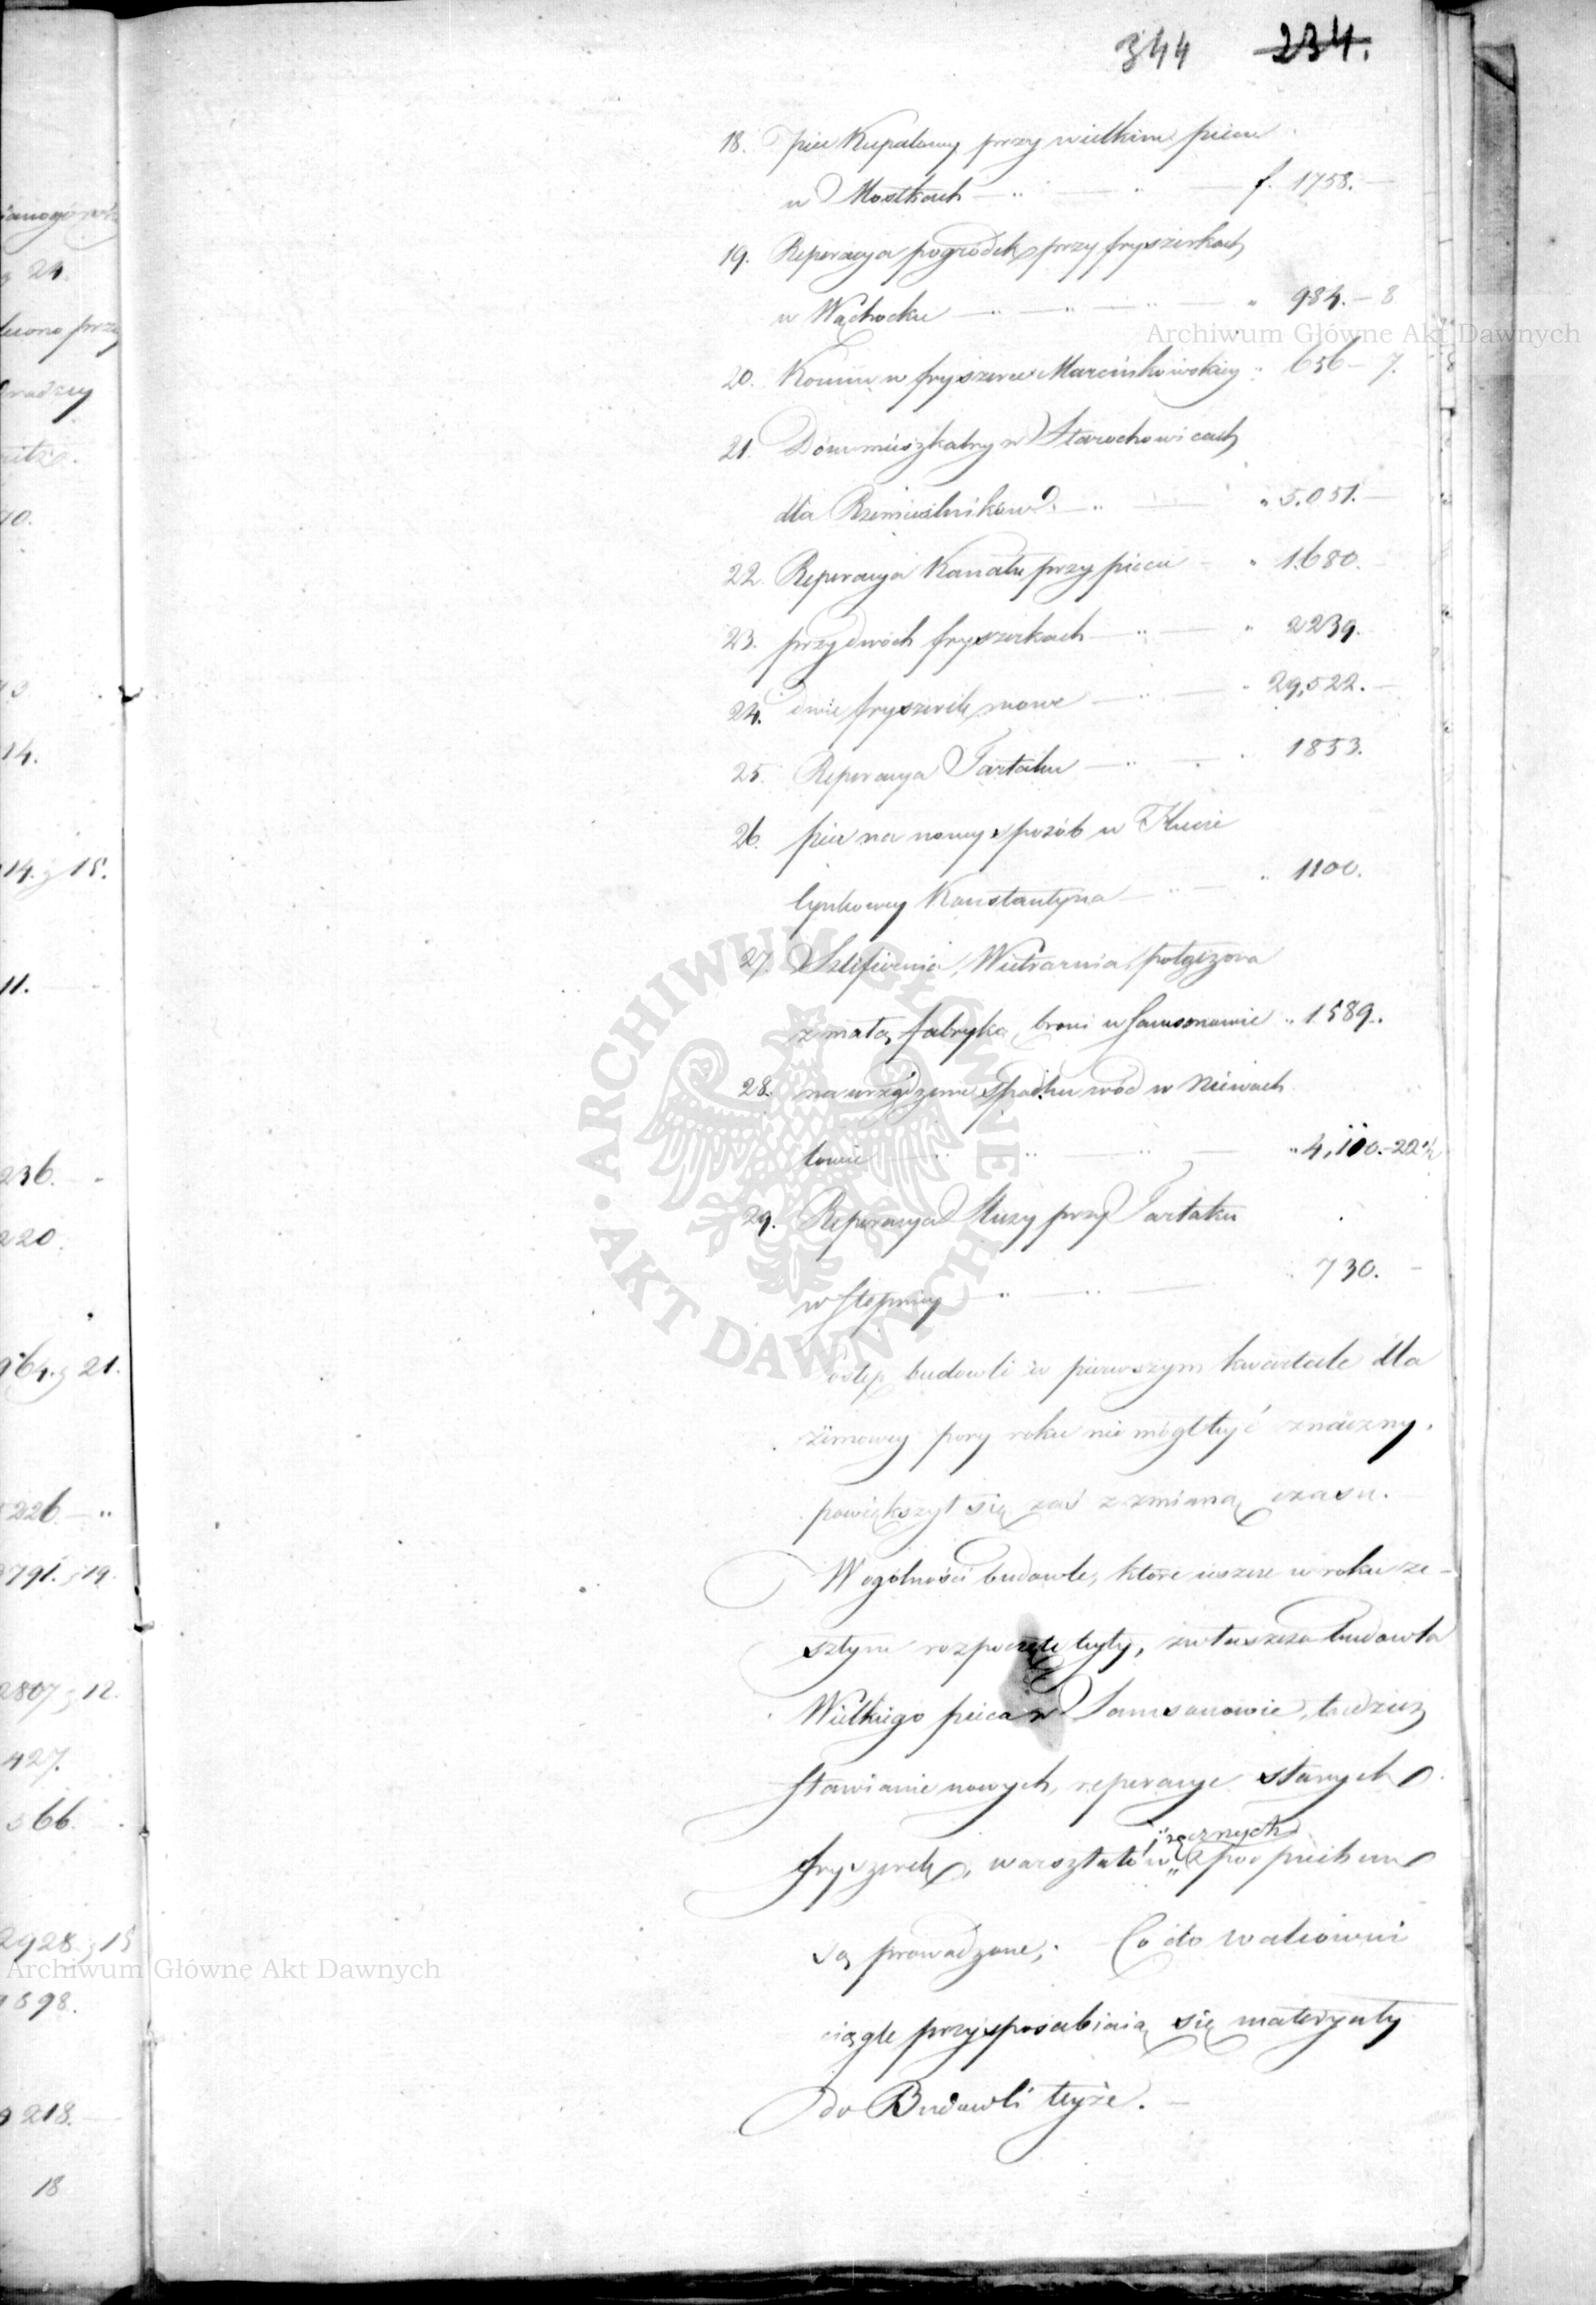 344 234.
18. piec Kupalowy przy wielkim piecu
w Mostkach — „ — „ — f. 1758. —
19. Reperacya pogrodek przy fryszerkach
w Wąchocku — „ — „ — „ 984. — 8
Archiwum Główne Akt Dawnych
20. Komin w fryszerce Marcinkowskiey „ 656 — 7.
21. Dom mieszkalny w Starochowicach
dla Rzemieślników. — „ — „ 5.051. —
22. Reperacya Kanału przy piecu — „ 1680.
23. przy dwóch fryszerkach — „ — „ 2239.
24. dwie fryszerki nowe — „ — „ 29,522. —
25. Reperacya Tartaku — „ — „ 1853.
26. piec na nowy sposób w Hucie
Cynkowey Konstantyna — „ — „ 1100.
27. Szlifiernia, Wiertarnia, połączona
z małą fabryką broni w Samsonowie „ 1589.
28. na urządzenie Spadku wód w Niewach
lowie — „ — „ — „ — „ 4,100. — 22
29. Reperacya Sluzy przy Tartaku
w — „ — „ — „ 730. —
Postęp budowli w pierwszym kwartale dla
zimowey pory roku nie mógł być znaczny.
powiększył się zaś z zmianą czasu. —
W ogólności budowle, które ieszcze w roku ze-
szłym rozpoczęte były, zwłaszcza budowla
Wielkiego pieca w Samsonowie, tudzież
stawianie nowych, reperacye starych
ręcznych
fryszerek, warsztatów „ z pospiechem
są prowadzone; Co do walcowni
Archiwum Główne Akt Dawnych
ciągle przysposabiaią się materyały
do Budowli teyże. —
ARCHIWUM GŁÓWNE AKT DAWNYCH
24.
10.
14.
14. 15.
11.
236. —
220.
964. 21.
226. — „
791. 19.
2807 12.
427.
566.
2928 15
898.
218. —
18